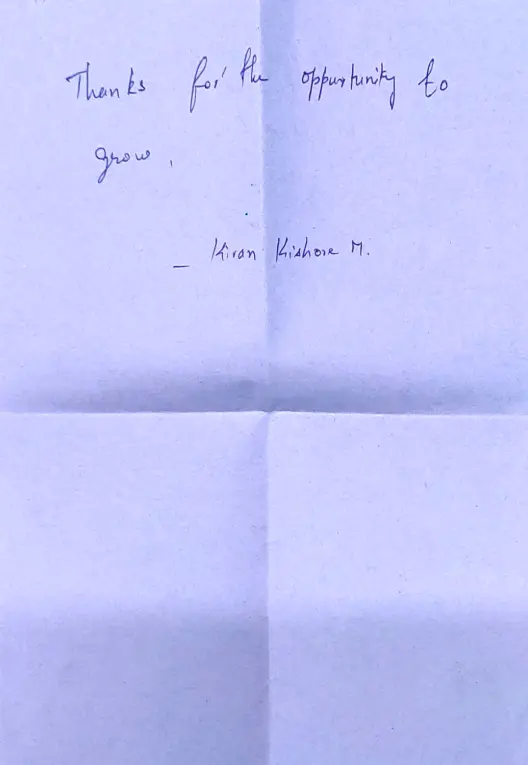 Thanks for the oppurtunity to
grow.
- Kiran Kishore M.